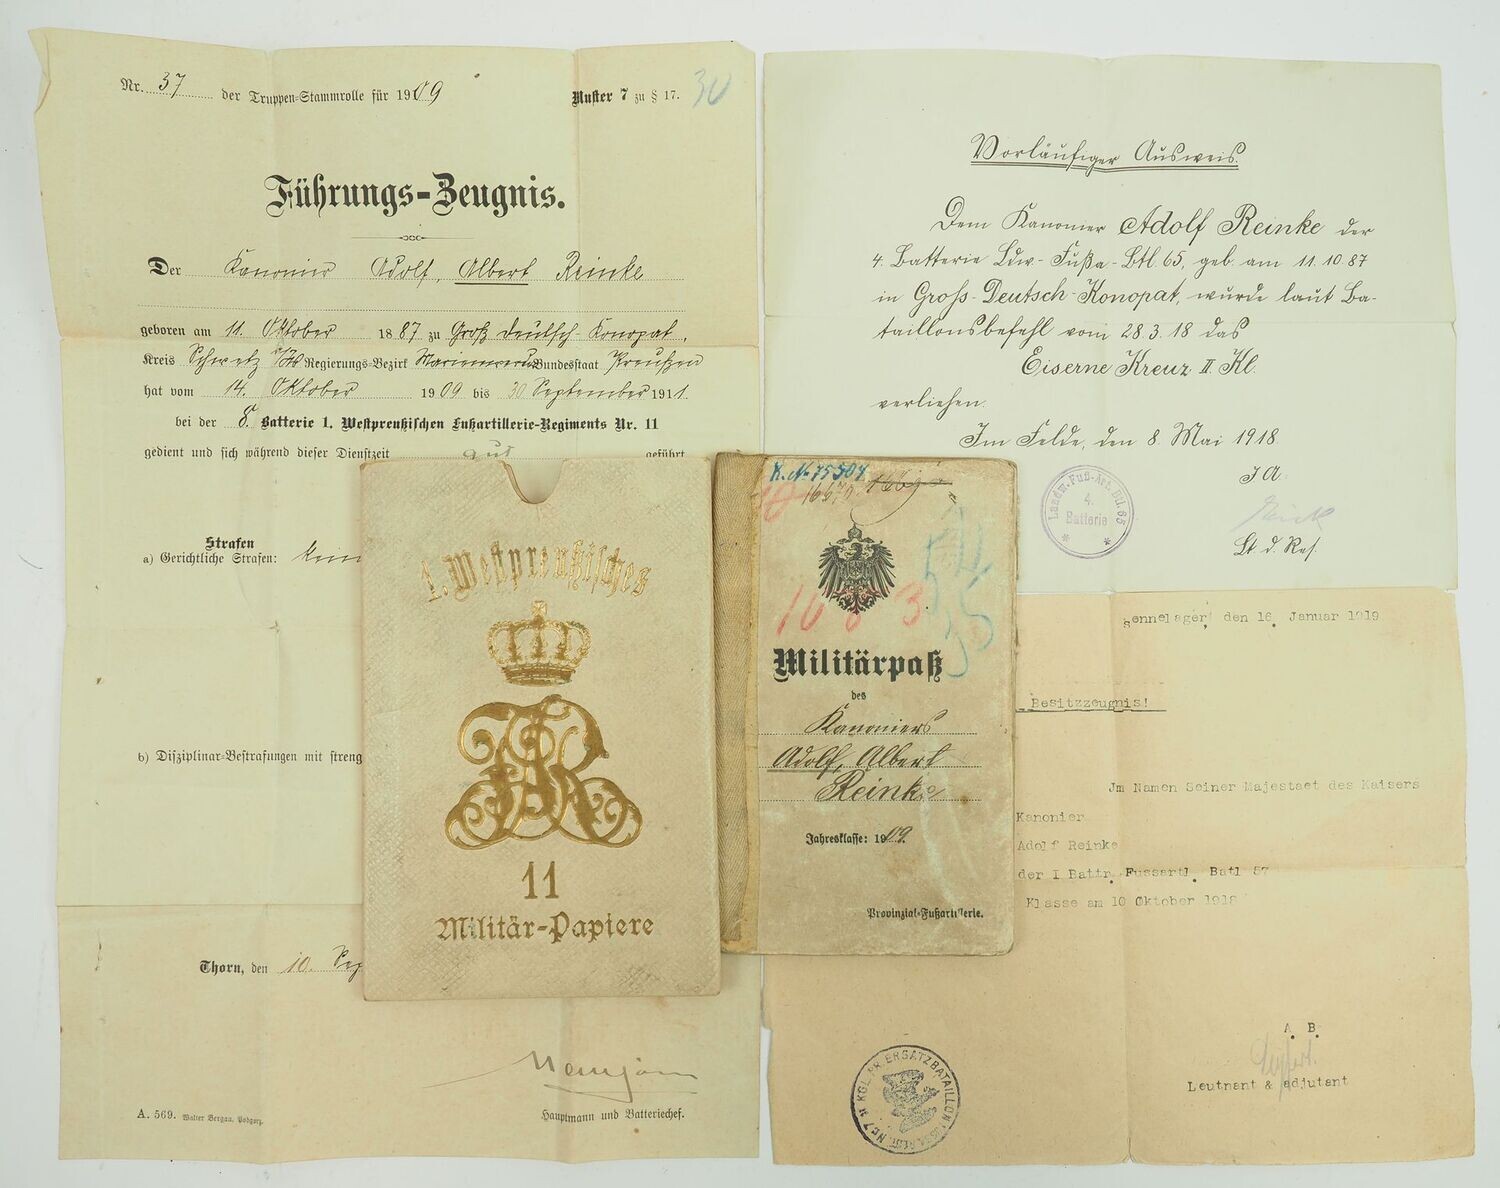 Nr. 37 der Truppen-Stammrolle für 1909 Muster 7 zu § 17. 30
Führungs-Zeugnis.
Der Kanonier Adolf, Albert Reinke
geboren am 11. Oktober 1887 zu Groß Deutsch-Konopat,
Kreis Schwetz Regierungs-Bezirk Marienwerder Bundesstaat Preußen
hat vom 14. Oktober 1909 bis 30 September 1911.
bei der 8. Batterie 1. Westpreußischen Fußartillerie-Regiments Nr. 11
gedient und sich während dieser Dienstzeit gut geführt
Strafen
a) Gerichtliche Strafen: Kein
b) Disziplinar-Bestrafungen mit streng
Thorn, den 10. Sep
Hauptmann und Batteriechef.
A. 569. Walter Bergau, Podgorz.
Vorläufiger Ausweis.
Dem Kanonier Adolf Reinke der
4. Batterie Ldw.-Fußa-Btl. 65, geb. am 11.10.87
in Gross-Deutsch-Konopat, wurde laut Ba-
taillonsbefehl vom 28.3.18 das
Eiserne Kreuz II Kl.
verliehen.
Im Felde, den 8. Mai 1918
JA
Lt d. Res.
Landw. Fuß-Art. Btl. 65
4.
Batterie
1. Westpreußisches
11
Militär-Papiere
K. No 75504
10 8 3
Militärpaß
des
Kanoniers
Adolf, Albert
Reinke
Jahresklasse: 1909.
Provinzial-Fußartillerie.
Sennelager, den 16. Januar 1919
Besitzzeugnis!
Jm Namen Seiner Majestaet des Kaisers
Kanonier
Adolf Reinke
der I Battr. Fussartl. Batl 57
Klasse am 10 Oktober 1918
A. B.
Leutnant & adjutant
KGL. PR. ERSATZBATAILLON